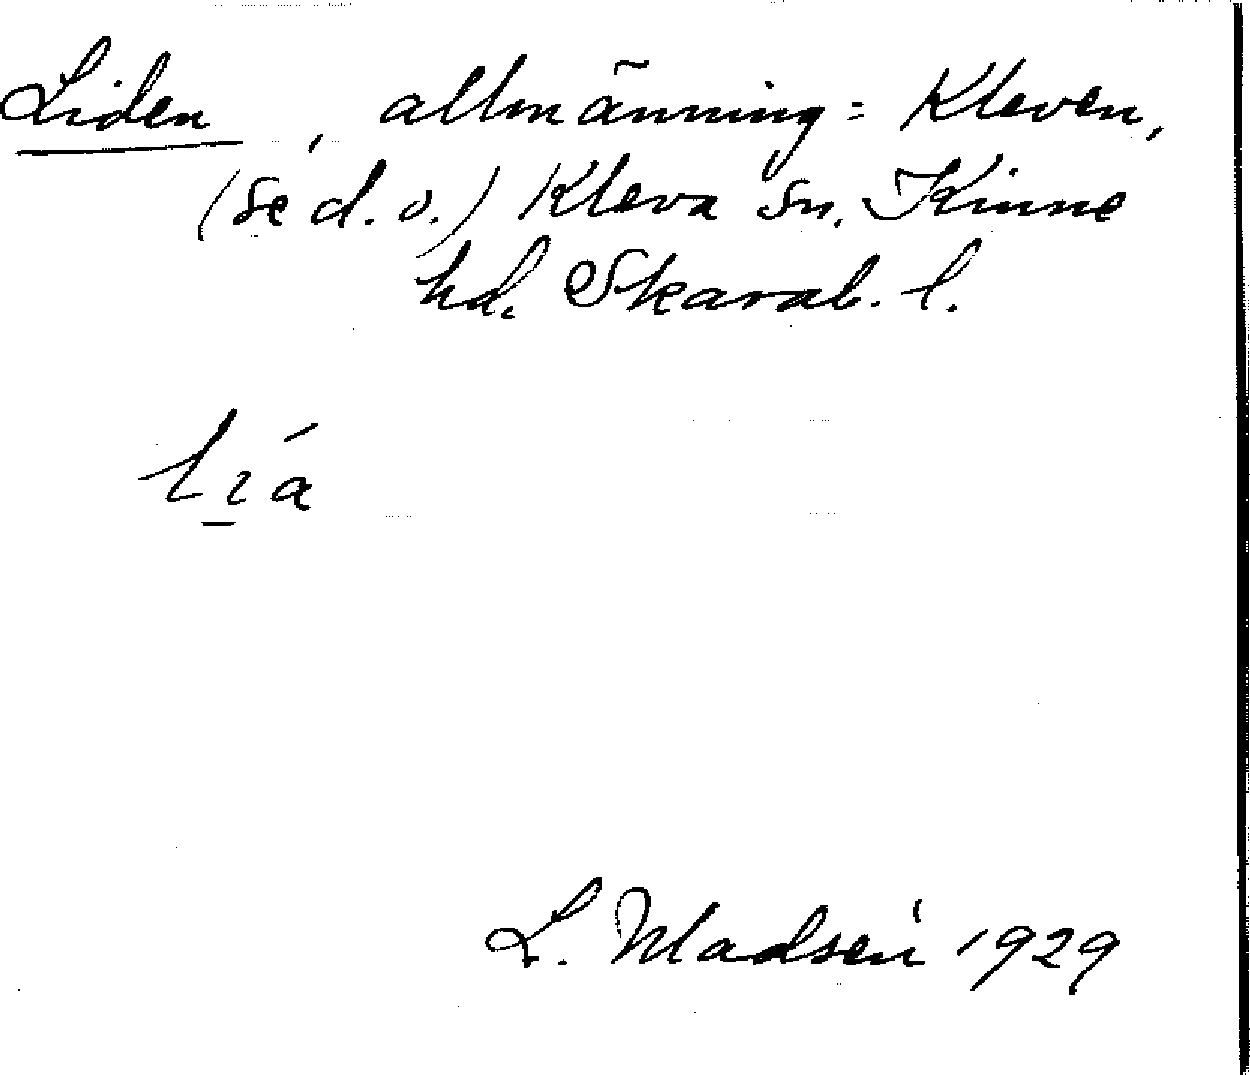 Liden, allmänning = Kleven,
(se d. o.) Kleva sn. Kinne
hd. Skarab. l.
L. Madsén 1929